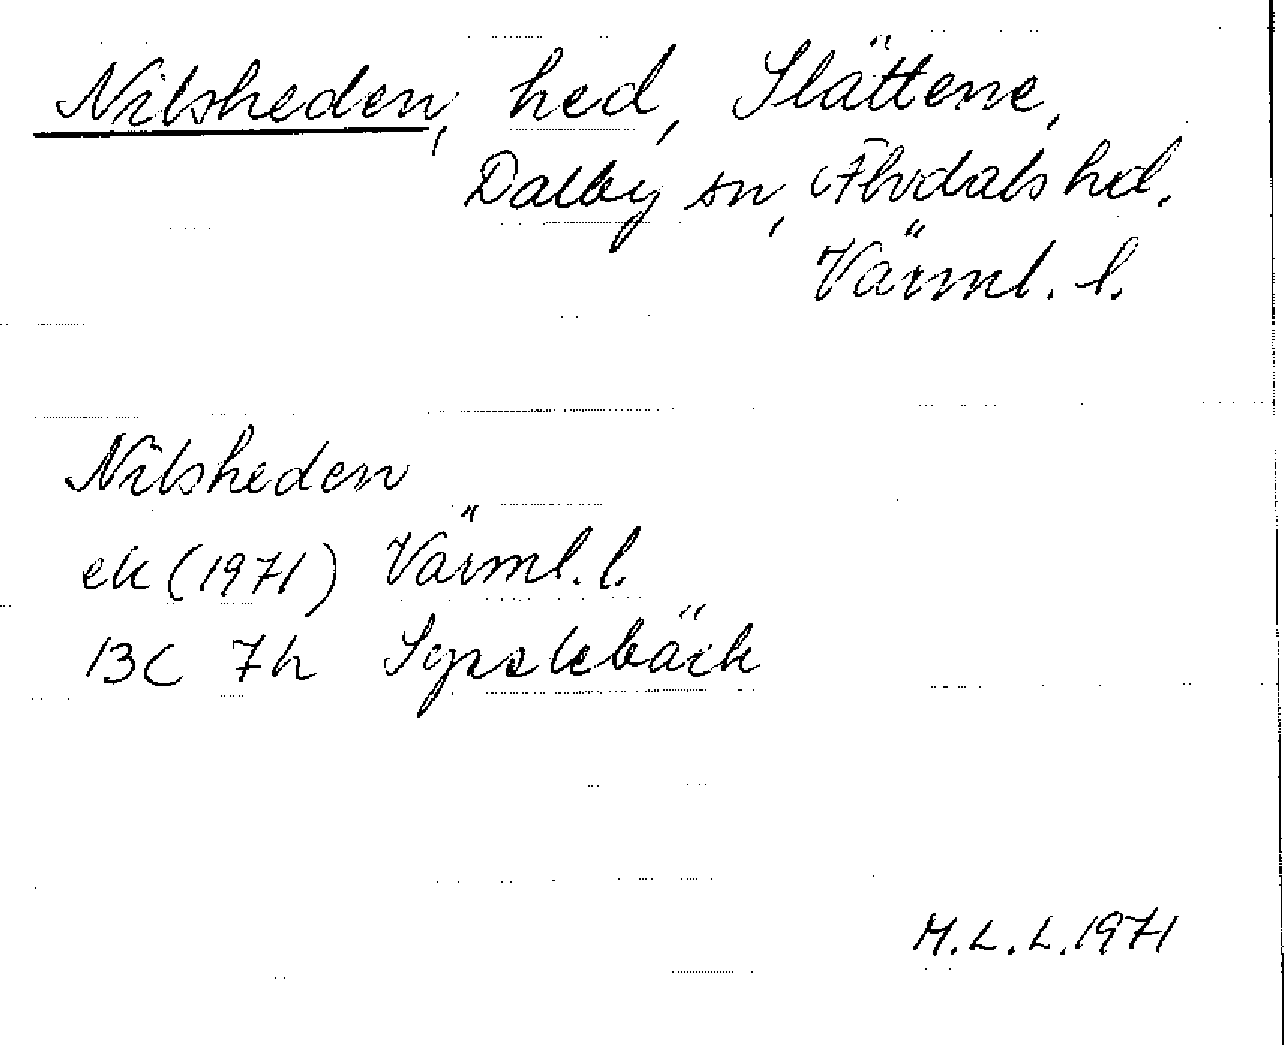 Nilsheden, hed, Slättene,
Dalby sn, Älvdals hd.
Värml. l.
Nilsheden
ek (1971) Värml. l.
13C 7h Sysslebäck
M. L. L. 1971